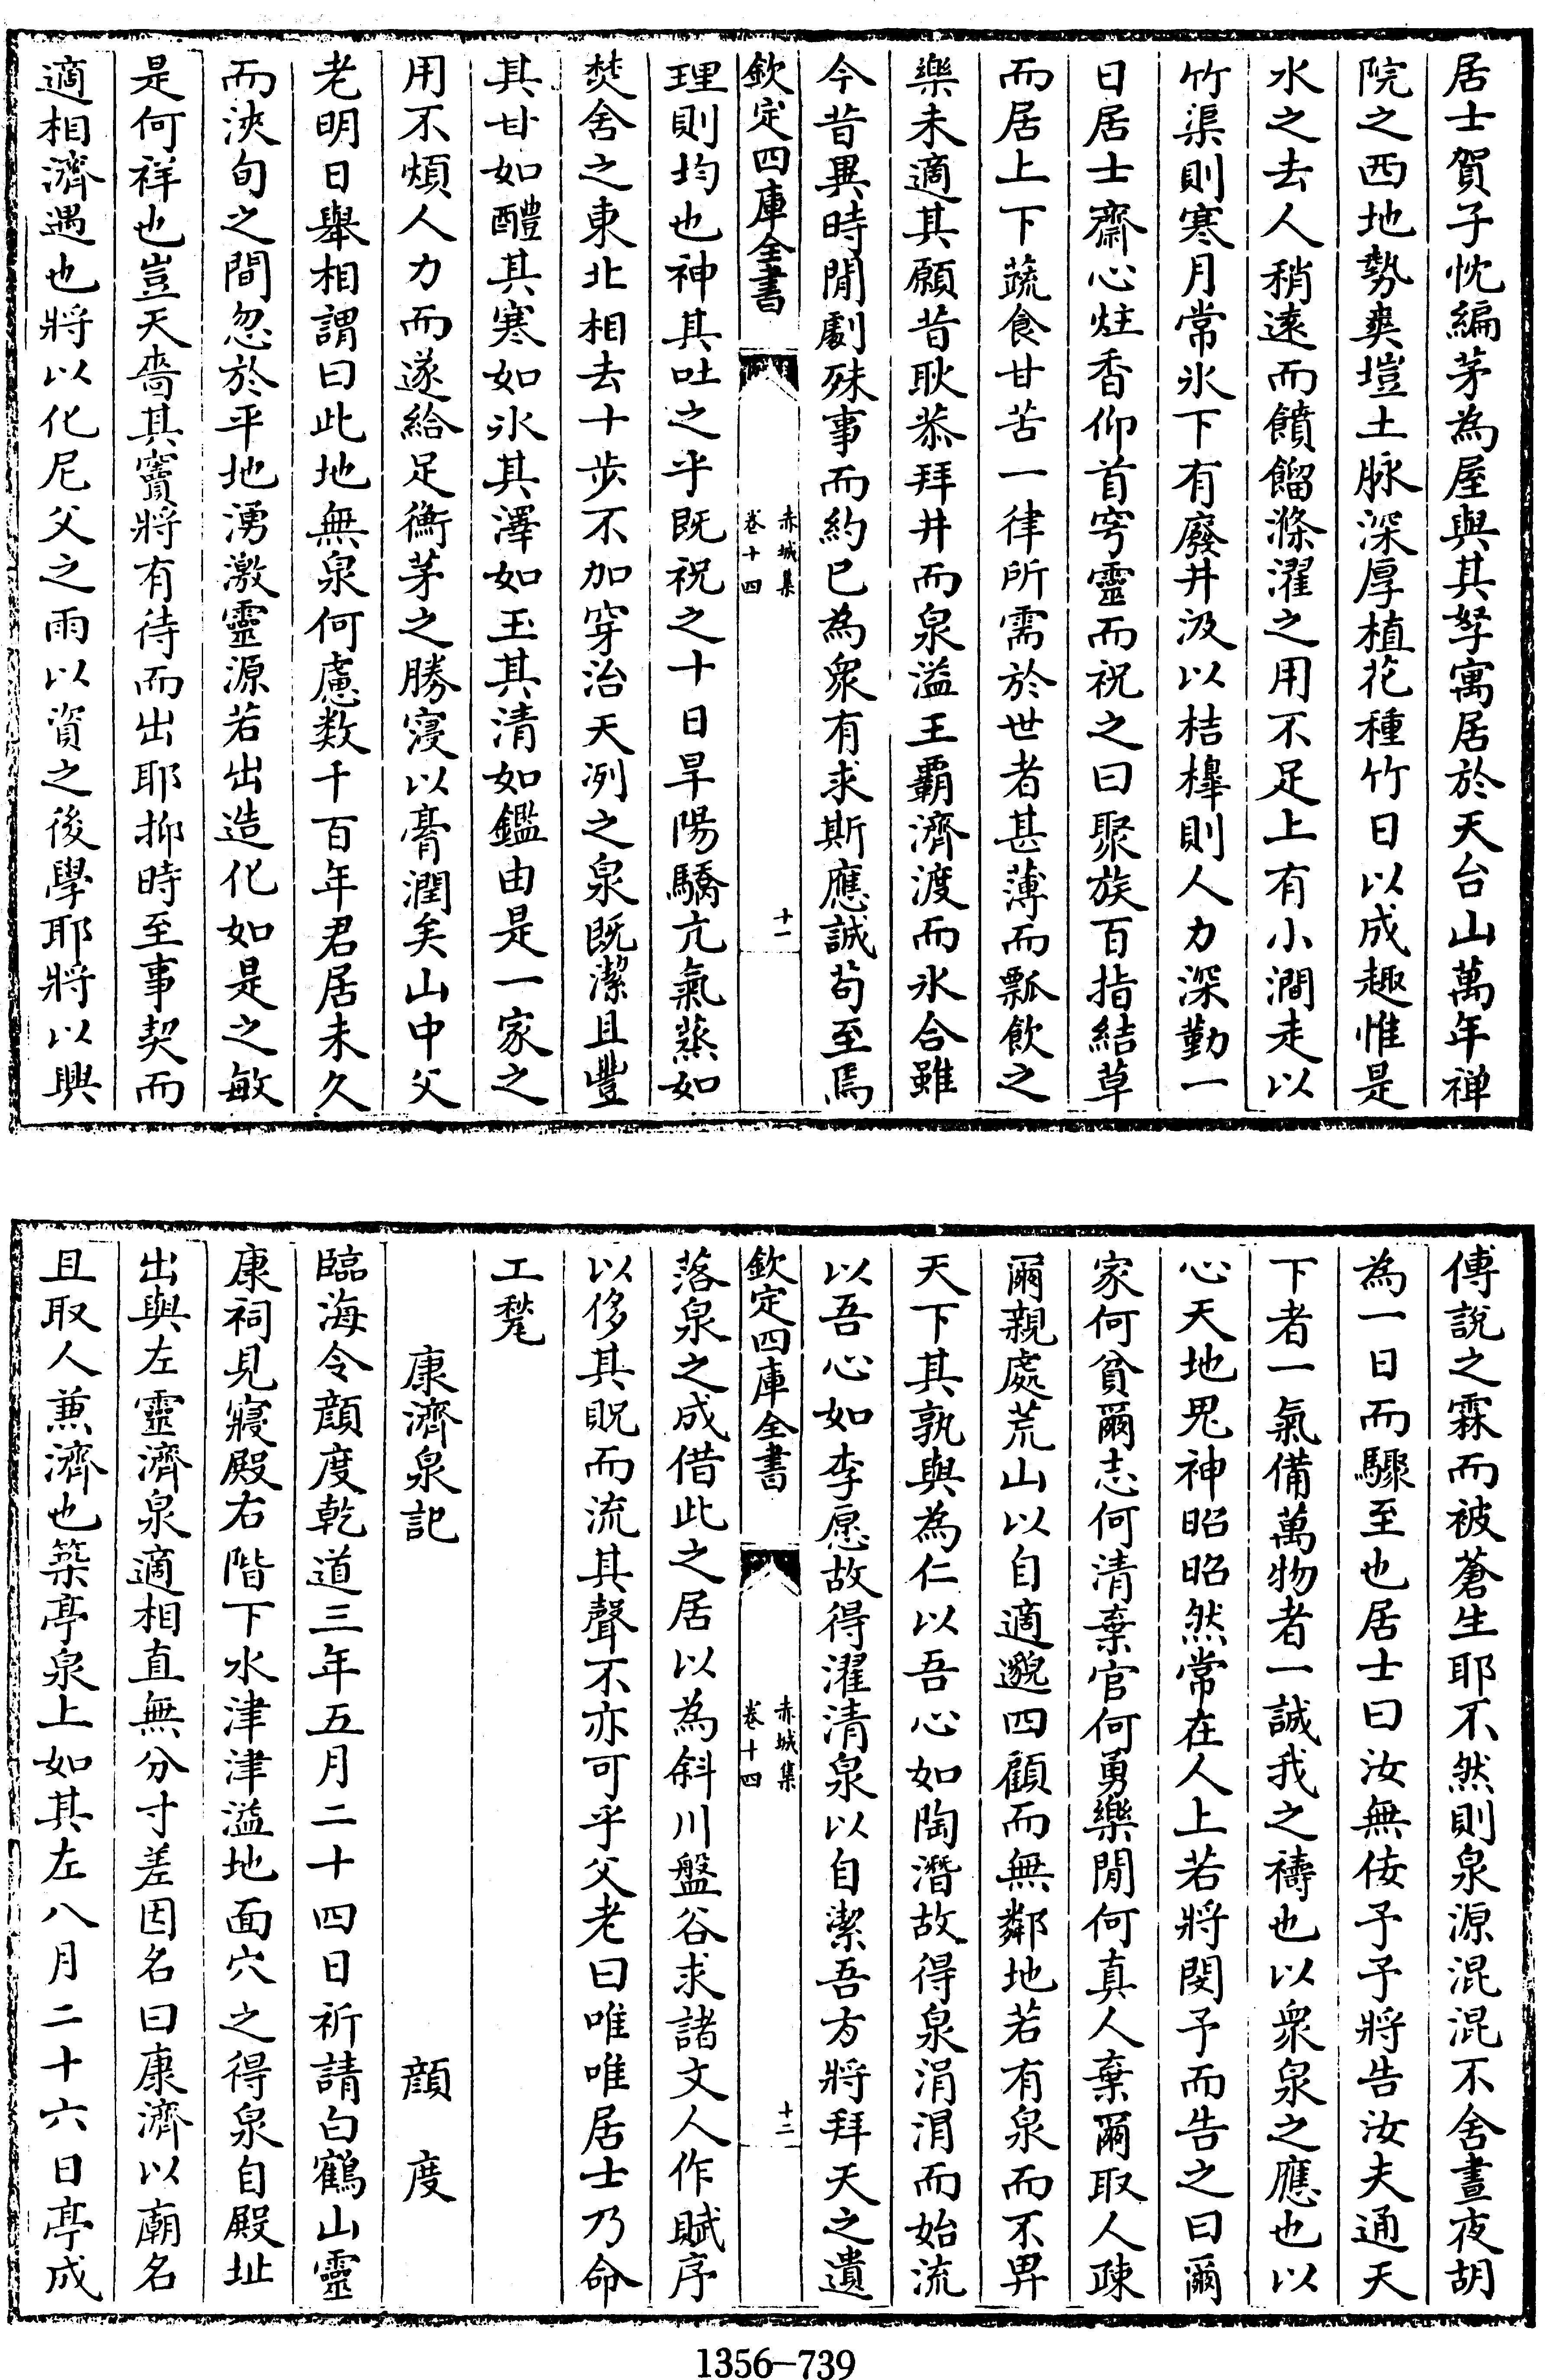 居士賀子忱編茅為屋與其孥寓居於天台山萬年禅
院之西地勢爽塏土脉深厚植花種竹日以成趣惟是
水之去人稍遠而饋餾滌濯之用不足上有小澗走以
竹渠則寒月常氷下有廢井汲以桔槹則人力深勤一
日居士齋心炷香仰首穹靈而祝之曰聚族百指結草
而居上下蔬食甘苦一律所需於世者甚薄而瓢飲之
樂未適其願昔耿恭拜井而泉溢王霸濟渡而氷合雖
今昔異時閒劇殊事而約已為衆有求斯應誠茍至焉
欽定四庫全書
赤城集
卷十四
十一
理則均也神其吐之乎既祝之十日旱陽驕亢氣蒸如
焚舍之東北相去十步不加穿治天冽之泉既潔且豐
其甘如醴其寒如氷其澤如玉其清如鑑由是一家之
用不煩人力而遂給足衡茅之勝寖以膏潤矣山中父
老明日舉相謂曰此地無泉何慮數千百年君居未久
而浹旬之間忽於平地湧激靈源若出造化如是之敏
是何祥也豈天嗇其寶將有待而出耶抑時至事契而
適相濟遇也將以化尼父之雨以資之後學耶將以興
傅說之霖而被蒼生耶不然則泉源混混不舍晝夜胡
為一日而驟至也居士曰汝無佞予予將告汝夫通天
下者一氣備萬物者一誠我之禱也以衆泉之應也以
心天地鬼神昭昭然常在人上若將閔予而告之曰爾
家何貧爾志何清棄官何勇樂閒何真人棄爾取人疎
爾親處荒山以自適邈四顧而無鄰地若有泉而不畀
天下其孰與為仁以吾心如陶潛故得泉涓涓而始流
以吾心如李愿故得濯清泉以自潔吾方將拜天之遺
欽定四庫全書
赤城集
卷十四
十二
落泉之成借此之居以為斜川盤谷求諸文人作賦序
以侈其貺而流其聲不亦可乎父老曰唯唯居士乃命
工甃
康濟泉記
顔度
臨海令顔度乾道三年五月二十四日祈請白鶴山靈
康祠見寢殿右階下水津津溢地面穴之得泉自殿址
出與左靈濟泉適相直無分寸差因名曰康濟以廟名
且取人兼濟也築亭泉上如其左八月二十六日亭成
1356-739